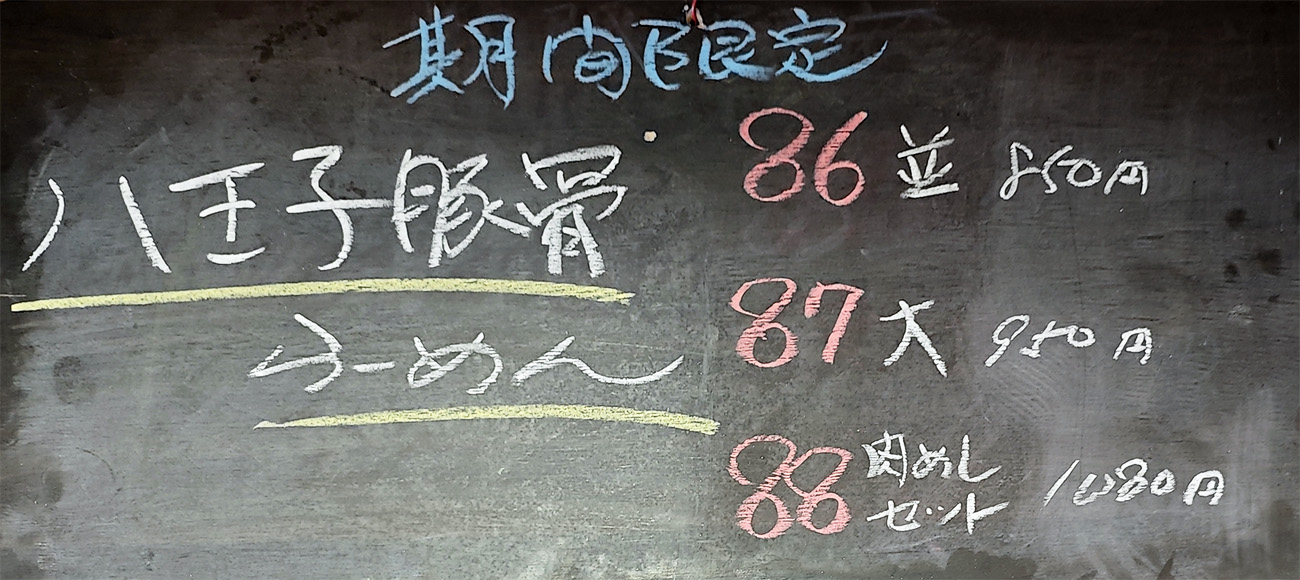 期間限定
八王子豚骨
らーめん
86 並 850円
87 大 950円
88 肉めし
セット 1080円